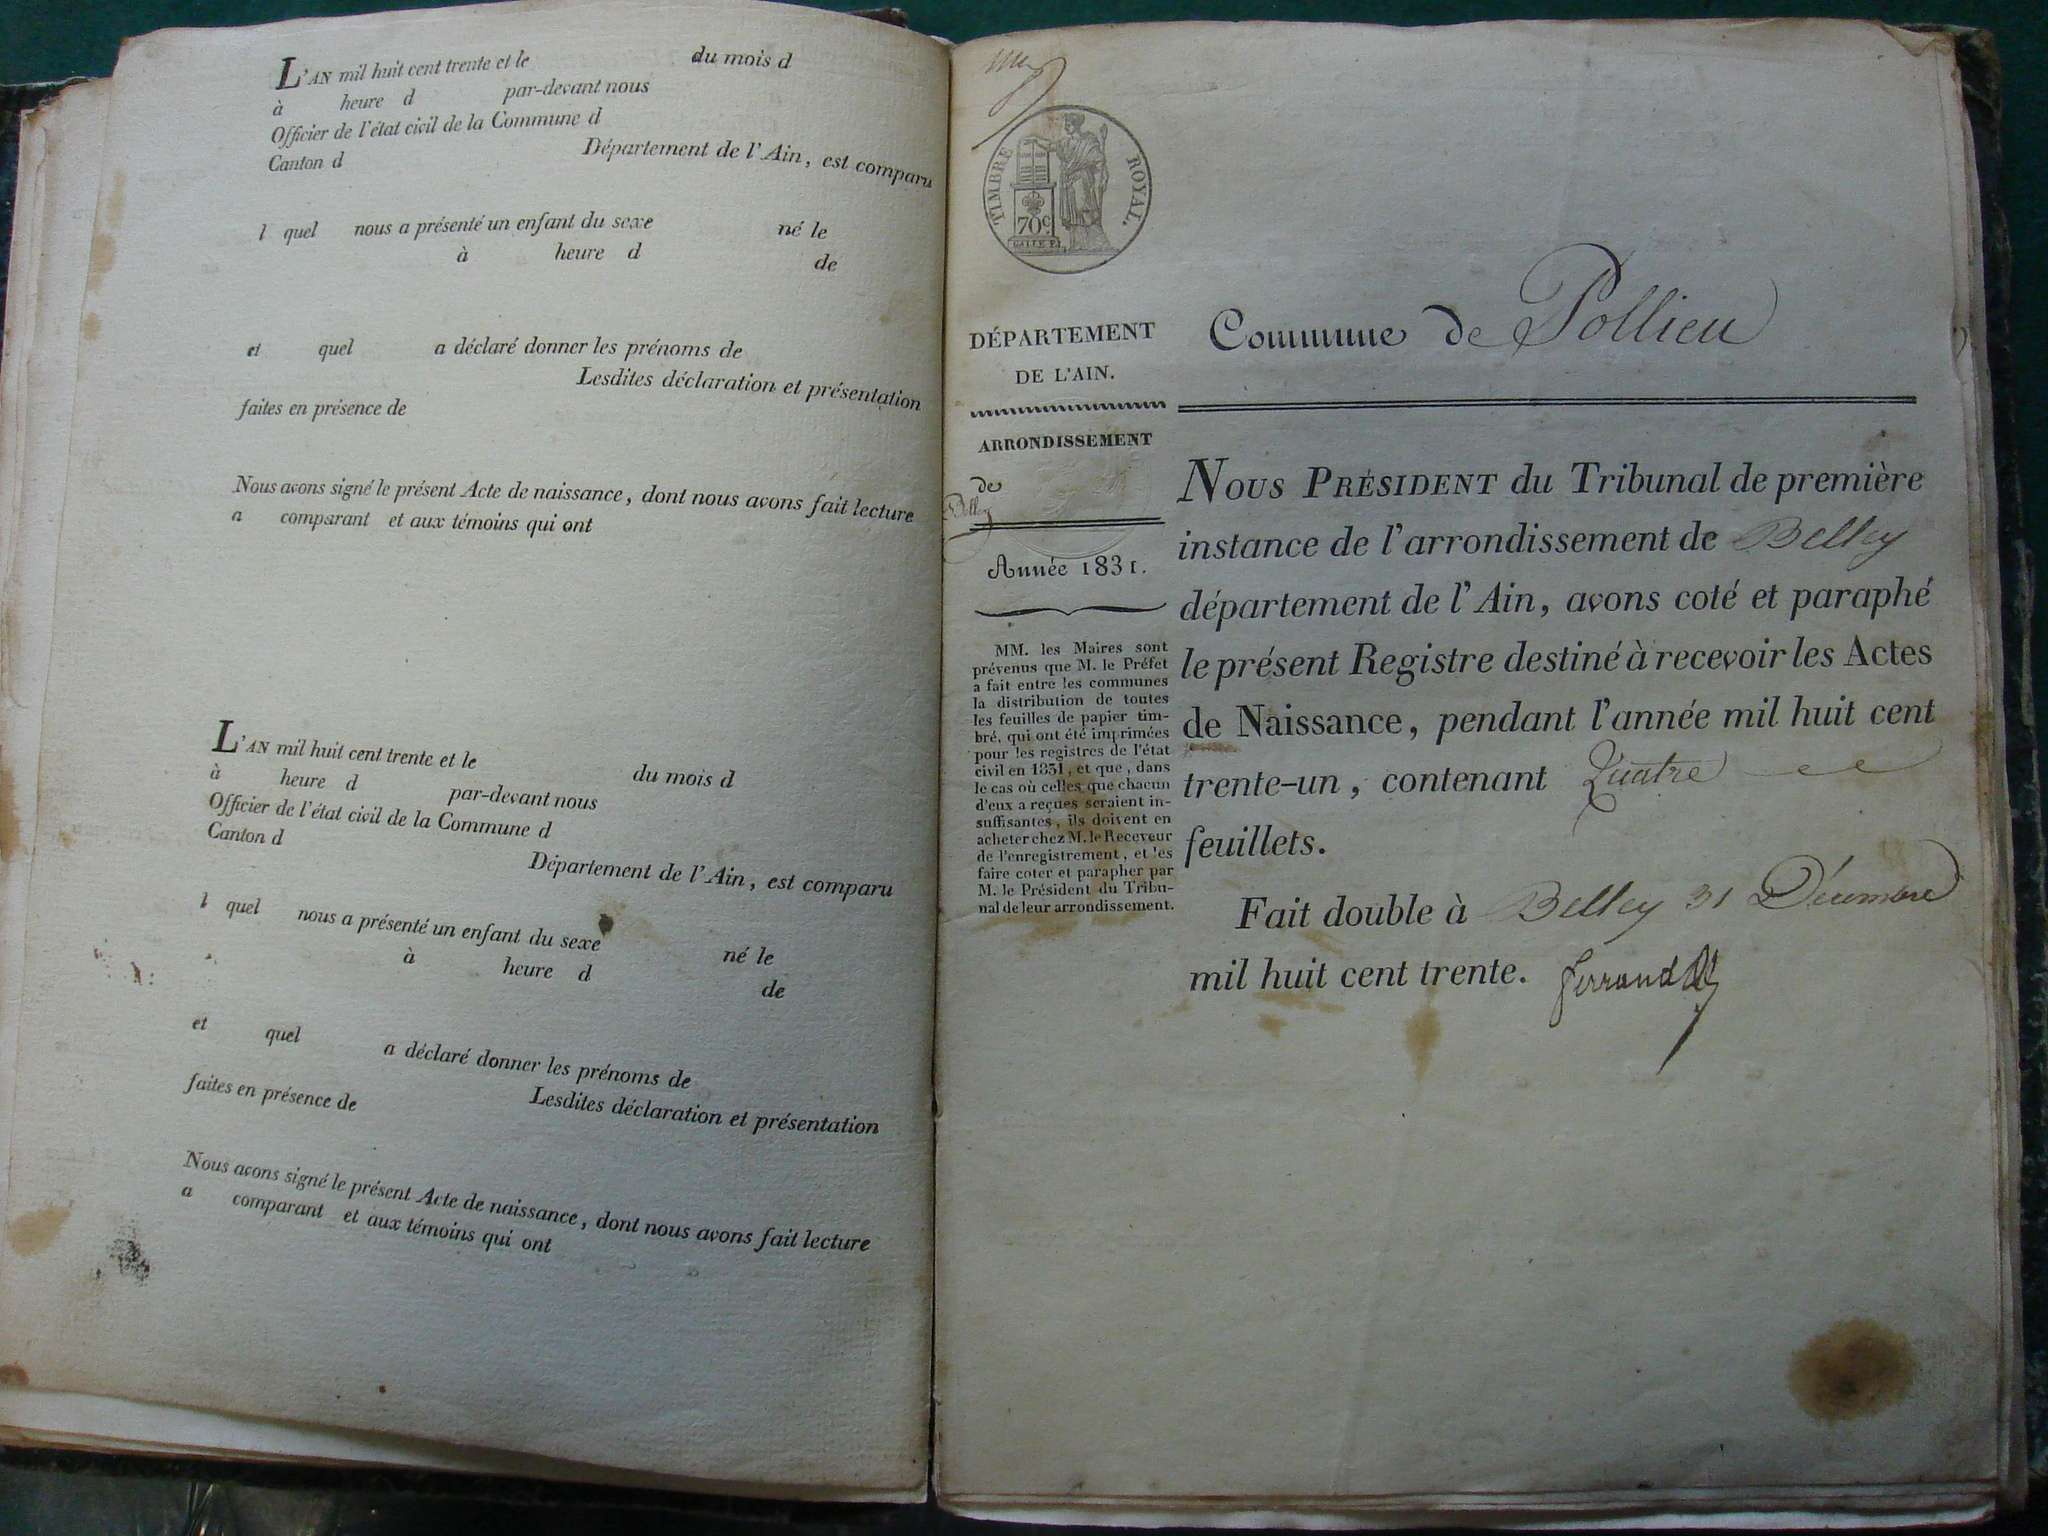 L'AN mil huit cent trente et le du mois d
à heure d par-devant nous
Officier de l'état civil de la Commune d
Canton d Département de l'Ain, est comparu
l quel nous a présenté un enfant du sexe né le
à heure d de
et quel a déclaré donner les prénoms de
Lesdites déclaration et présentation
faites en présence de
Nous avons signé le présent Acte de naissance, dont nous avons fait lecture
a comparant et aux témoins qui ont
L'AN mil huit cent trente et le du mois d
à heure d par-devant nous
Officier de l'état civil de la Commune d
Canton d Département de l'Ain, est comparu
l quel nous a présenté un enfant du sexe né le
à heure d de
et quel a déclaré donner les prénoms de
Lesdites déclaration et présentation
faites en présence de
Nous avons signé le présent Acte de naissance, dont nous avons fait lecture
a comparant et aux témoins qui ont
TIMBRE ROYAL.
70c.
DÉPARTEMENT
DE L'AIN.
ARRONDISSEMENT
de
Belley
Année 1831.
MM. les Maires sont
prévenus que M. le Préfet
a fait entre les communes
la distribution de toutes
les feuilles de papier tim-
bré, qui ont été imprimées
pour les registres de l'état
civil en 1831, et que, dans
le cas où celles que chacun
d'eux a reçues seraient in-
suffisantes, ils doivent en
acheter chez M. le Receveur
de l'enregistrement, et les
faire coter et parapher par
M. le Président du Tribu-
nal de leur arrondissement.
Commune de Pollieu
NOUS PRÉSIDENT du Tribunal de première
instance de l'arrondissement de Belley
département de l'Ain, avons coté et paraphé
le présent Registre destiné à recevoir les Actes
de Naissance, pendant l'année mil huit cent
trente-un, contenant Quatre
feuillets.
Fait double à Belley 31 Décembre
mil huit cent trente. ferrand